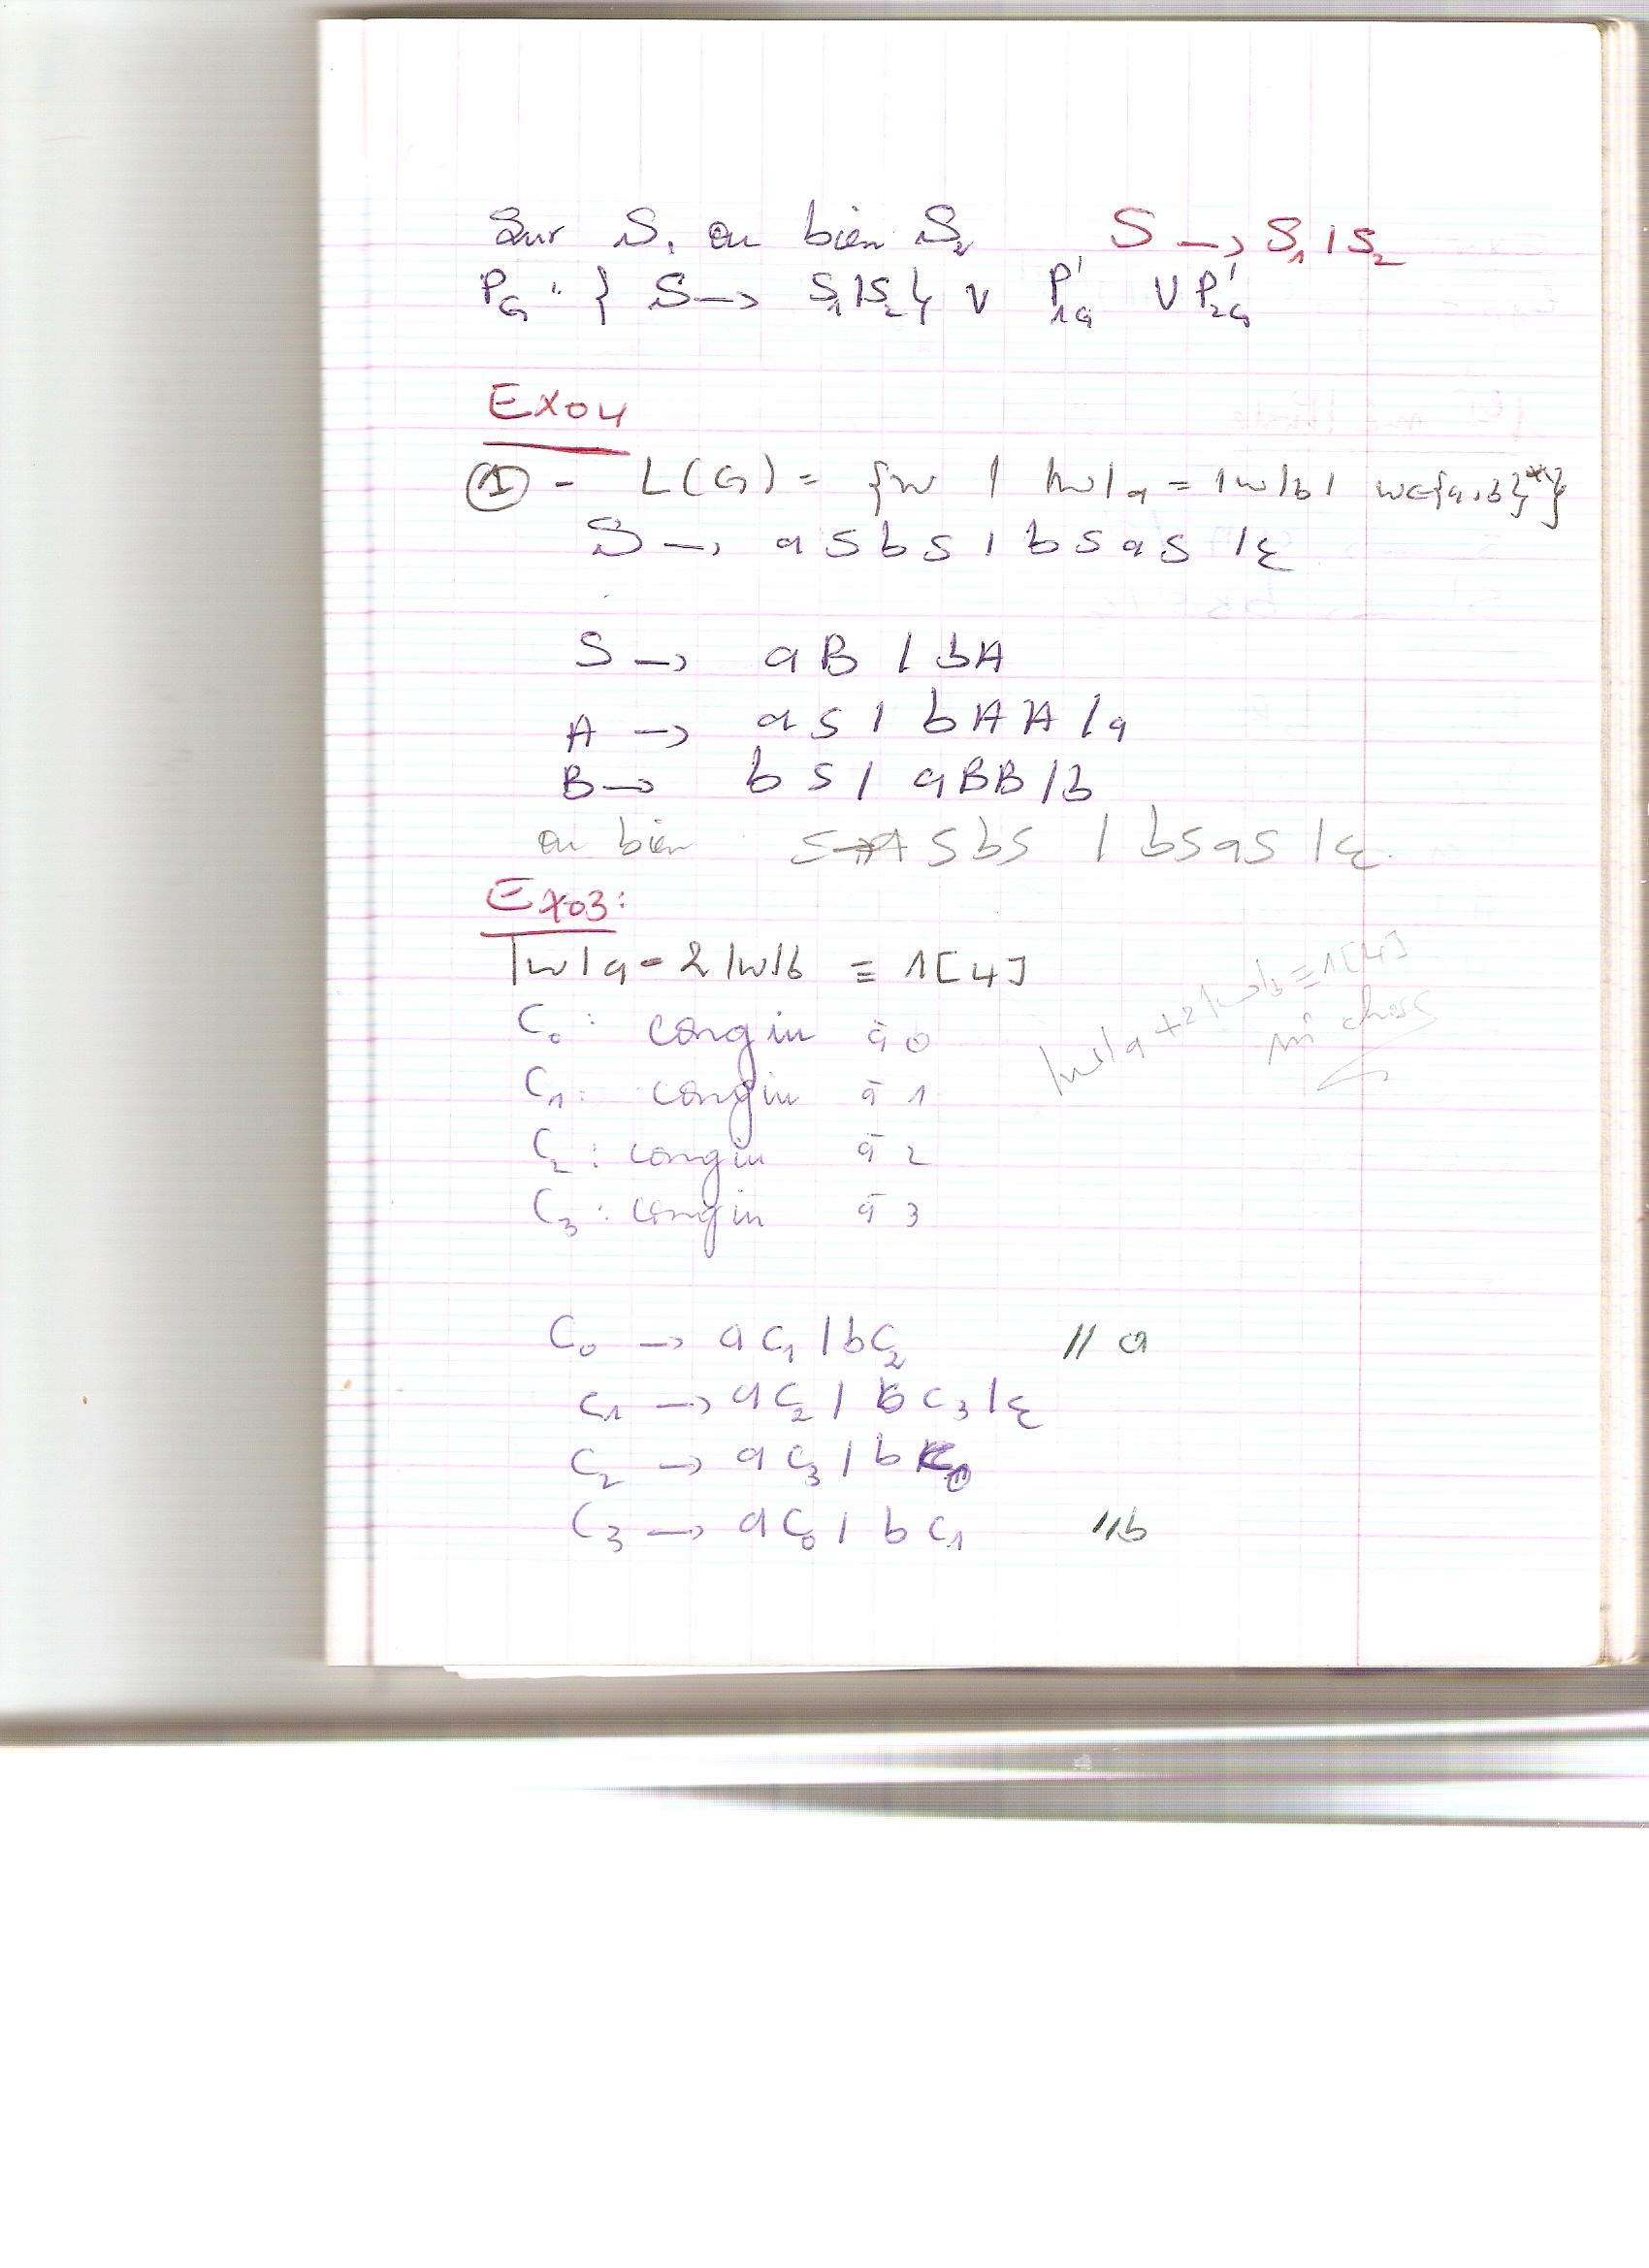 Sur S₁ ou bien S₂ S → S₁ | S₂
P_G : } S → S₁|S₂} ∨ P'₁G ∨ P'₂G
Exo4
① - L(G) = {w / |w|a = |w|b / w∈{a,b}*}
S → aSbS | bSaS | ε
S → aB | bA
A → aS | bAA | a
B → bS | aBB | b
ou bien S → ASbS | bSaS | ε.
Exo3:
|w|a - 2|w|b ≡ 1[4]
|w|a + 2|w|b ≡ 1[4]
C₀ : congru à 0
C₁ : congru à 1
C₂ : congru à 2
C₃ : congru à 3
C₀ → aC₁ | bC₂ // a
C₁ → aC₂ | bC₃ | ε
C₂ → aC₃ | bC₀
C₃ → aC₀ | bC₁ // b